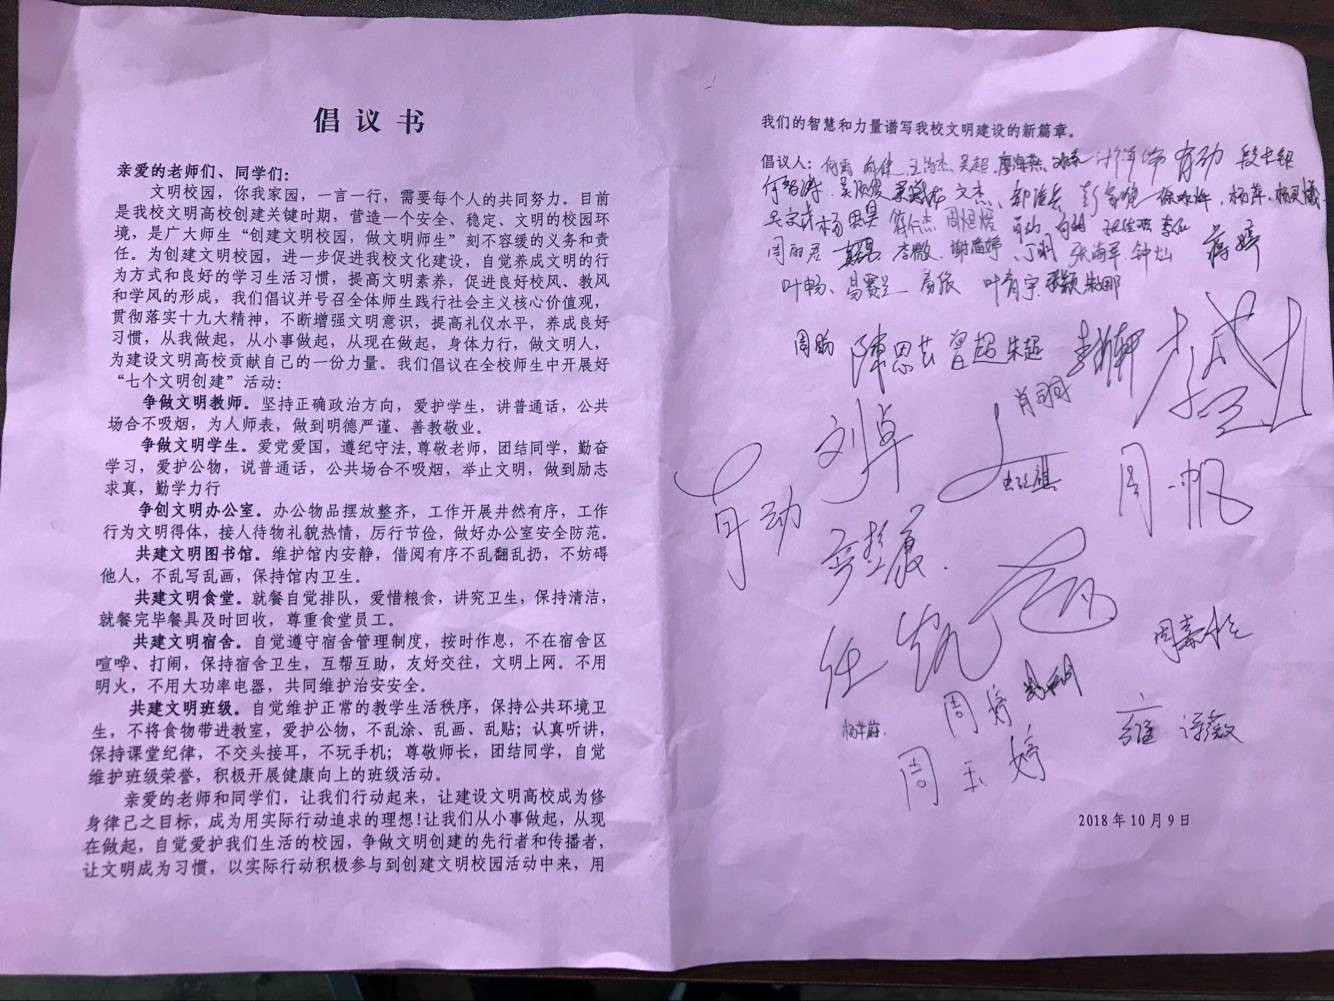 倡议书
亲爱的老师们、同学们：
文明校园，你我家园，一言一行，需要每个人的共同努力。目前
是我校文明高校创建关键时期，营造一个安全、稳定、文明的校园环
境，是广大师生“创建文明校园，做文明师生”刻不容缓的义务和责
任。为创建文明校园，进一步促进我校文化建设，自觉养成文明的行
为方式和良好的学习生活习惯，提高文明素养，促进良好校风、教风
和学风的形成，我们倡议并号召全体师生践行社会主义核心价值观，
贯彻落实十九大精神，不断增强文明意识，提高礼仪水平，养成良好
习惯，从我做起，从小事做起，从现在做起，身体力行，做文明人，
为建设文明高校贡献自己的一份力量。我们倡议在全校师生中开展好
“七个文明创建”活动：
争做文明教师。坚持正确政治方向，爱护学生，讲普通话，公共
场合不吸烟，为人师表，做到明德严谨、善教敬业。
争做文明学生。爱党爱国，遵纪守法,尊敬老师，团结同学，勤奋
学习，爱护公物，说普通话，公共场合不吸烟，举止文明，做到励志
求真，勤学力行
争创文明办公室。办公物品摆放整齐，工作开展井然有序，工作
行为文明得体，接人待物礼貌热情，厉行节俭，做好办公室安全防范。
共建文明图书馆。维护馆内安静，借阅有序不乱翻乱扔，不妨碍
他人，不乱写乱画，保持馆内卫生。
共建文明食堂。就餐自觉排队，爱惜粮食，讲究卫生，保持清洁，
就餐完毕餐具及时回收，尊重食堂员工。
共建文明宿舍。自觉遵守宿舍管理制度，按时作息，不在宿舍区
喧哗、打闹，保持宿舍卫生，互帮互助，友好交往，文明上网。不用
明火，不用大功率电器，共同维护治安安全。
共建文明班级。自觉维护正常的教学生活秩序，保持公共环境卫
生，不将食物带进教室，爱护公物，不乱涂、乱画、乱贴；认真听讲，
保持课堂纪律，不交头接耳，不玩手机；尊敬师长，团结同学，自觉
维护班级荣誉，积极开展健康向上的班级活动。
亲爱的老师和同学们，让我们行动起来，让建设文明高校成为修
身律己之目标，成为用实际行动追求的理想!让我们从小事做起，从现
在做起，自觉爱护我们生活的校园，争做文明创建的先行者和传播者，
让文明成为习惯，以实际行动积极参与到创建文明校园活动中来，用
我们的智慧和力量谱写我校文明建设的新篇章。
倡议人： 吴超 廖海燕
文杰、 杨萍、
周丽君 李微、谢 婷、丁羽 张海军 钟灿 蒋婷
叶畅、易 叶育宇
周 陈思芸 曾超 朱超
刘卓
周帆
周婷
周玉婷
2018年10月9日